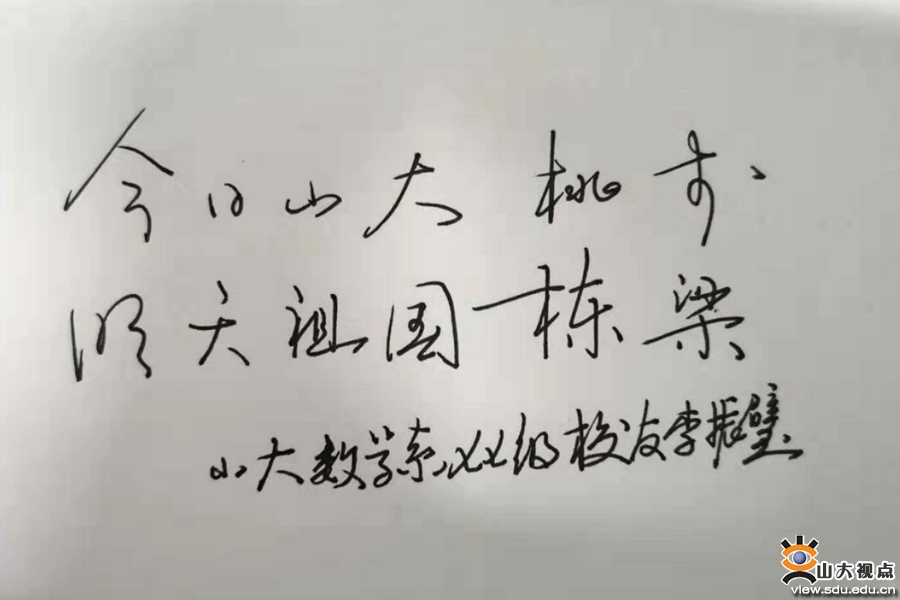 今日山大桃李、
明天祖国栋梁
山大数学系,七七级校友李振壁
山大视点
view.sdu.edu.cn